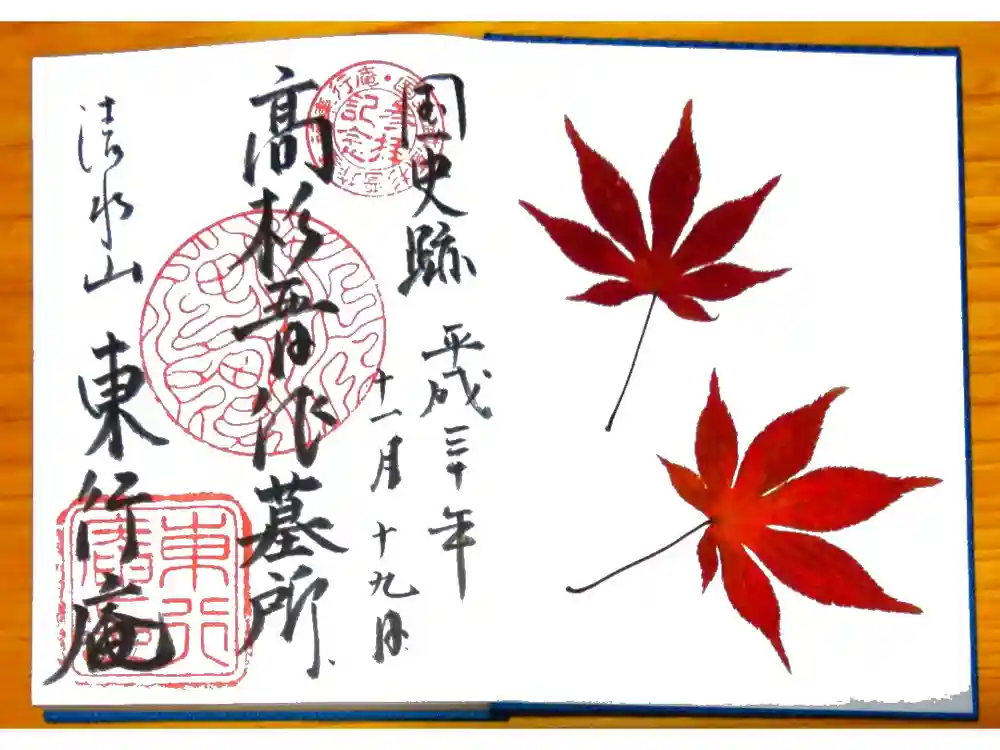 国史跡 平成三十年
十一月十九日
高杉晋作墓所
清水山 東行庵
記念
東行庵